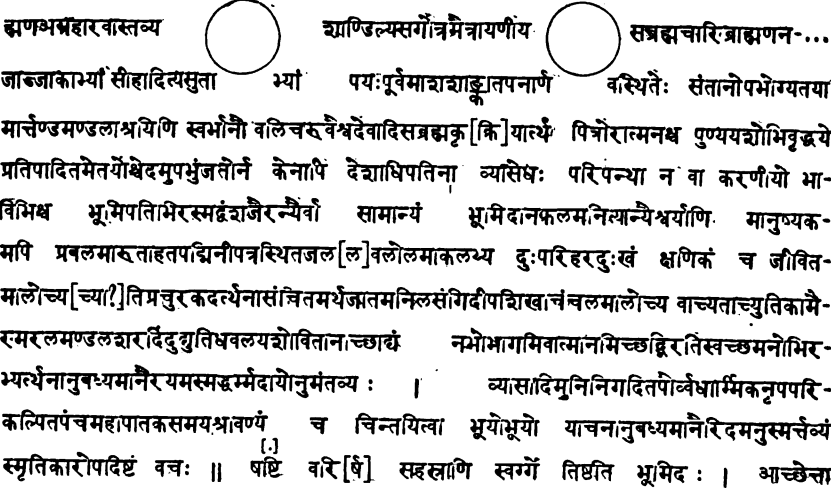 ह्मणअग्रहारवास्तव्य शाण्डिल्यसगोत्रमैत्रायणीय सब्रह्मचारिब्राह्मणन-...
जाज्जाकाभ्यां सीहादित्यसुता भ्यां पयःपूर्वमाशशाङ्कातपनार्ण वस्थितेः संतानोपभोग्यतया
मार्त्तण्डमण्डलाश्रयिणि स्वर्भानौ वलिचरुवैश्वदेवादिसब्रह्मकृ[क्रि]यार्त्थं पित्रोरात्मनश्च पुण्ययशोभिवृद्धये
प्रतिपादितमेतयोश्चेदमुपभुंजतोर्न केनापि देशाधिपतिना व्यासेधः परिपन्था न वा करणीयो भा-
विभिश्च भूमिपतिभिरस्मद्वंशजैरन्यैर्वा सामान्यं भूमिदानफलमनित्यान्यैश्वर्याणि मानुष्यक-
मपि प्रबलमारुताहतपद्मिनीपत्रस्थितजल[ल]वलोलमाकलय्य दुःपरिहरदुःखं क्षणिकं च जीवित-
मालोच्य[च्या?]तिप्रचुरकदर्त्थनासंचितमर्थजातमनिलसंगिदीपशिखाचंचलमालोच्य वाच्यताच्युतिकामै-
रमरलमण्डलशरदिंदुद्युतिधवलयशोवितानाच्छाद्यं नभोभागमिवात्मानमिच्छद्भिरतिस्वच्छमनोभिर-
भ्यर्त्थनानुबध्यमानैरयमस्मद्धर्म्मदायोनुमंतव्यः । व्यासादिमुनिनिगदितपोर्व्वधार्म्मिकनृपपरि-
कल्पितपंचमहापातकसमयश्रावण्यं च चिन्तयित्वा भूयोभूयो याचनानुबध्यमानैरिदमनुस्मर्त्तव्यं
स्मृतिकारोपदिष्टं वचः ॥ षष्टि[.] वरि[र्ष] सहस्राणि स्वर्ग्गे तिष्ठति भूमिदः । आच्छेत्ता